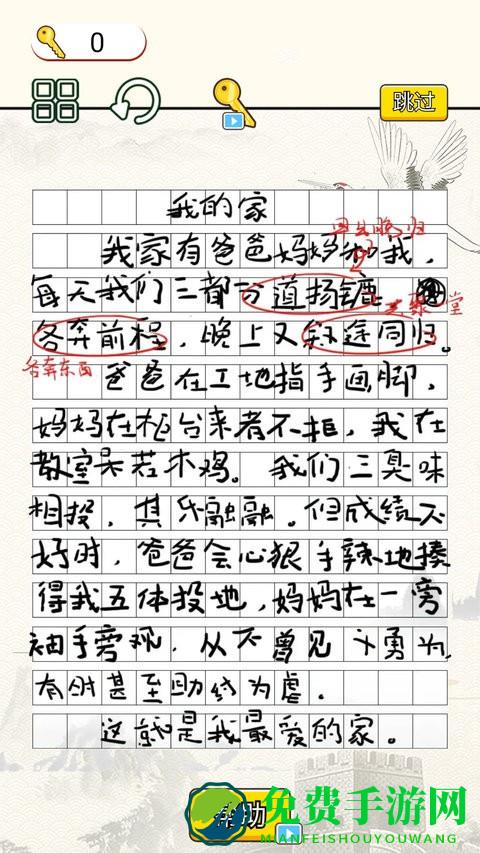 0
跳过
我的家
早出晚归
我家有爸爸妈妈和我，
每天我们三都分道扬镳，
共聚一堂
各奔前程，晚上又殊途同归。
各奔东西
爸爸在工地指手画脚，
妈妈在柜台来者不拒，我在
教室呆若木鸡。我们三臭味
相投，其乐融融。但成绩不
好时，爸爸会心狠手辣地揍
得我五体投地，妈妈在一旁
袖手旁观，从不曾见义勇为，
有时甚至助纣为虐。
这就是我最爱的家。
帮助
免费手游网
MIANFEISHOUYOUWANG